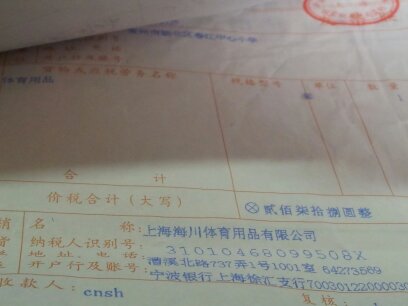 货物或应税劳务名称 规格型号 单位 数量
体育用品
合 计
价税合计（大写） ⊗贰佰柒拾捌圆整
名 称：上海海川体育用品有限公司
纳税人识别号：31010468099508X
地 址、电 话：漕溪北路737弄1号1001室 64273569
开户行及账号：宁波银行上海徐汇支行70030122000030
收 款 人：cnsh 复核